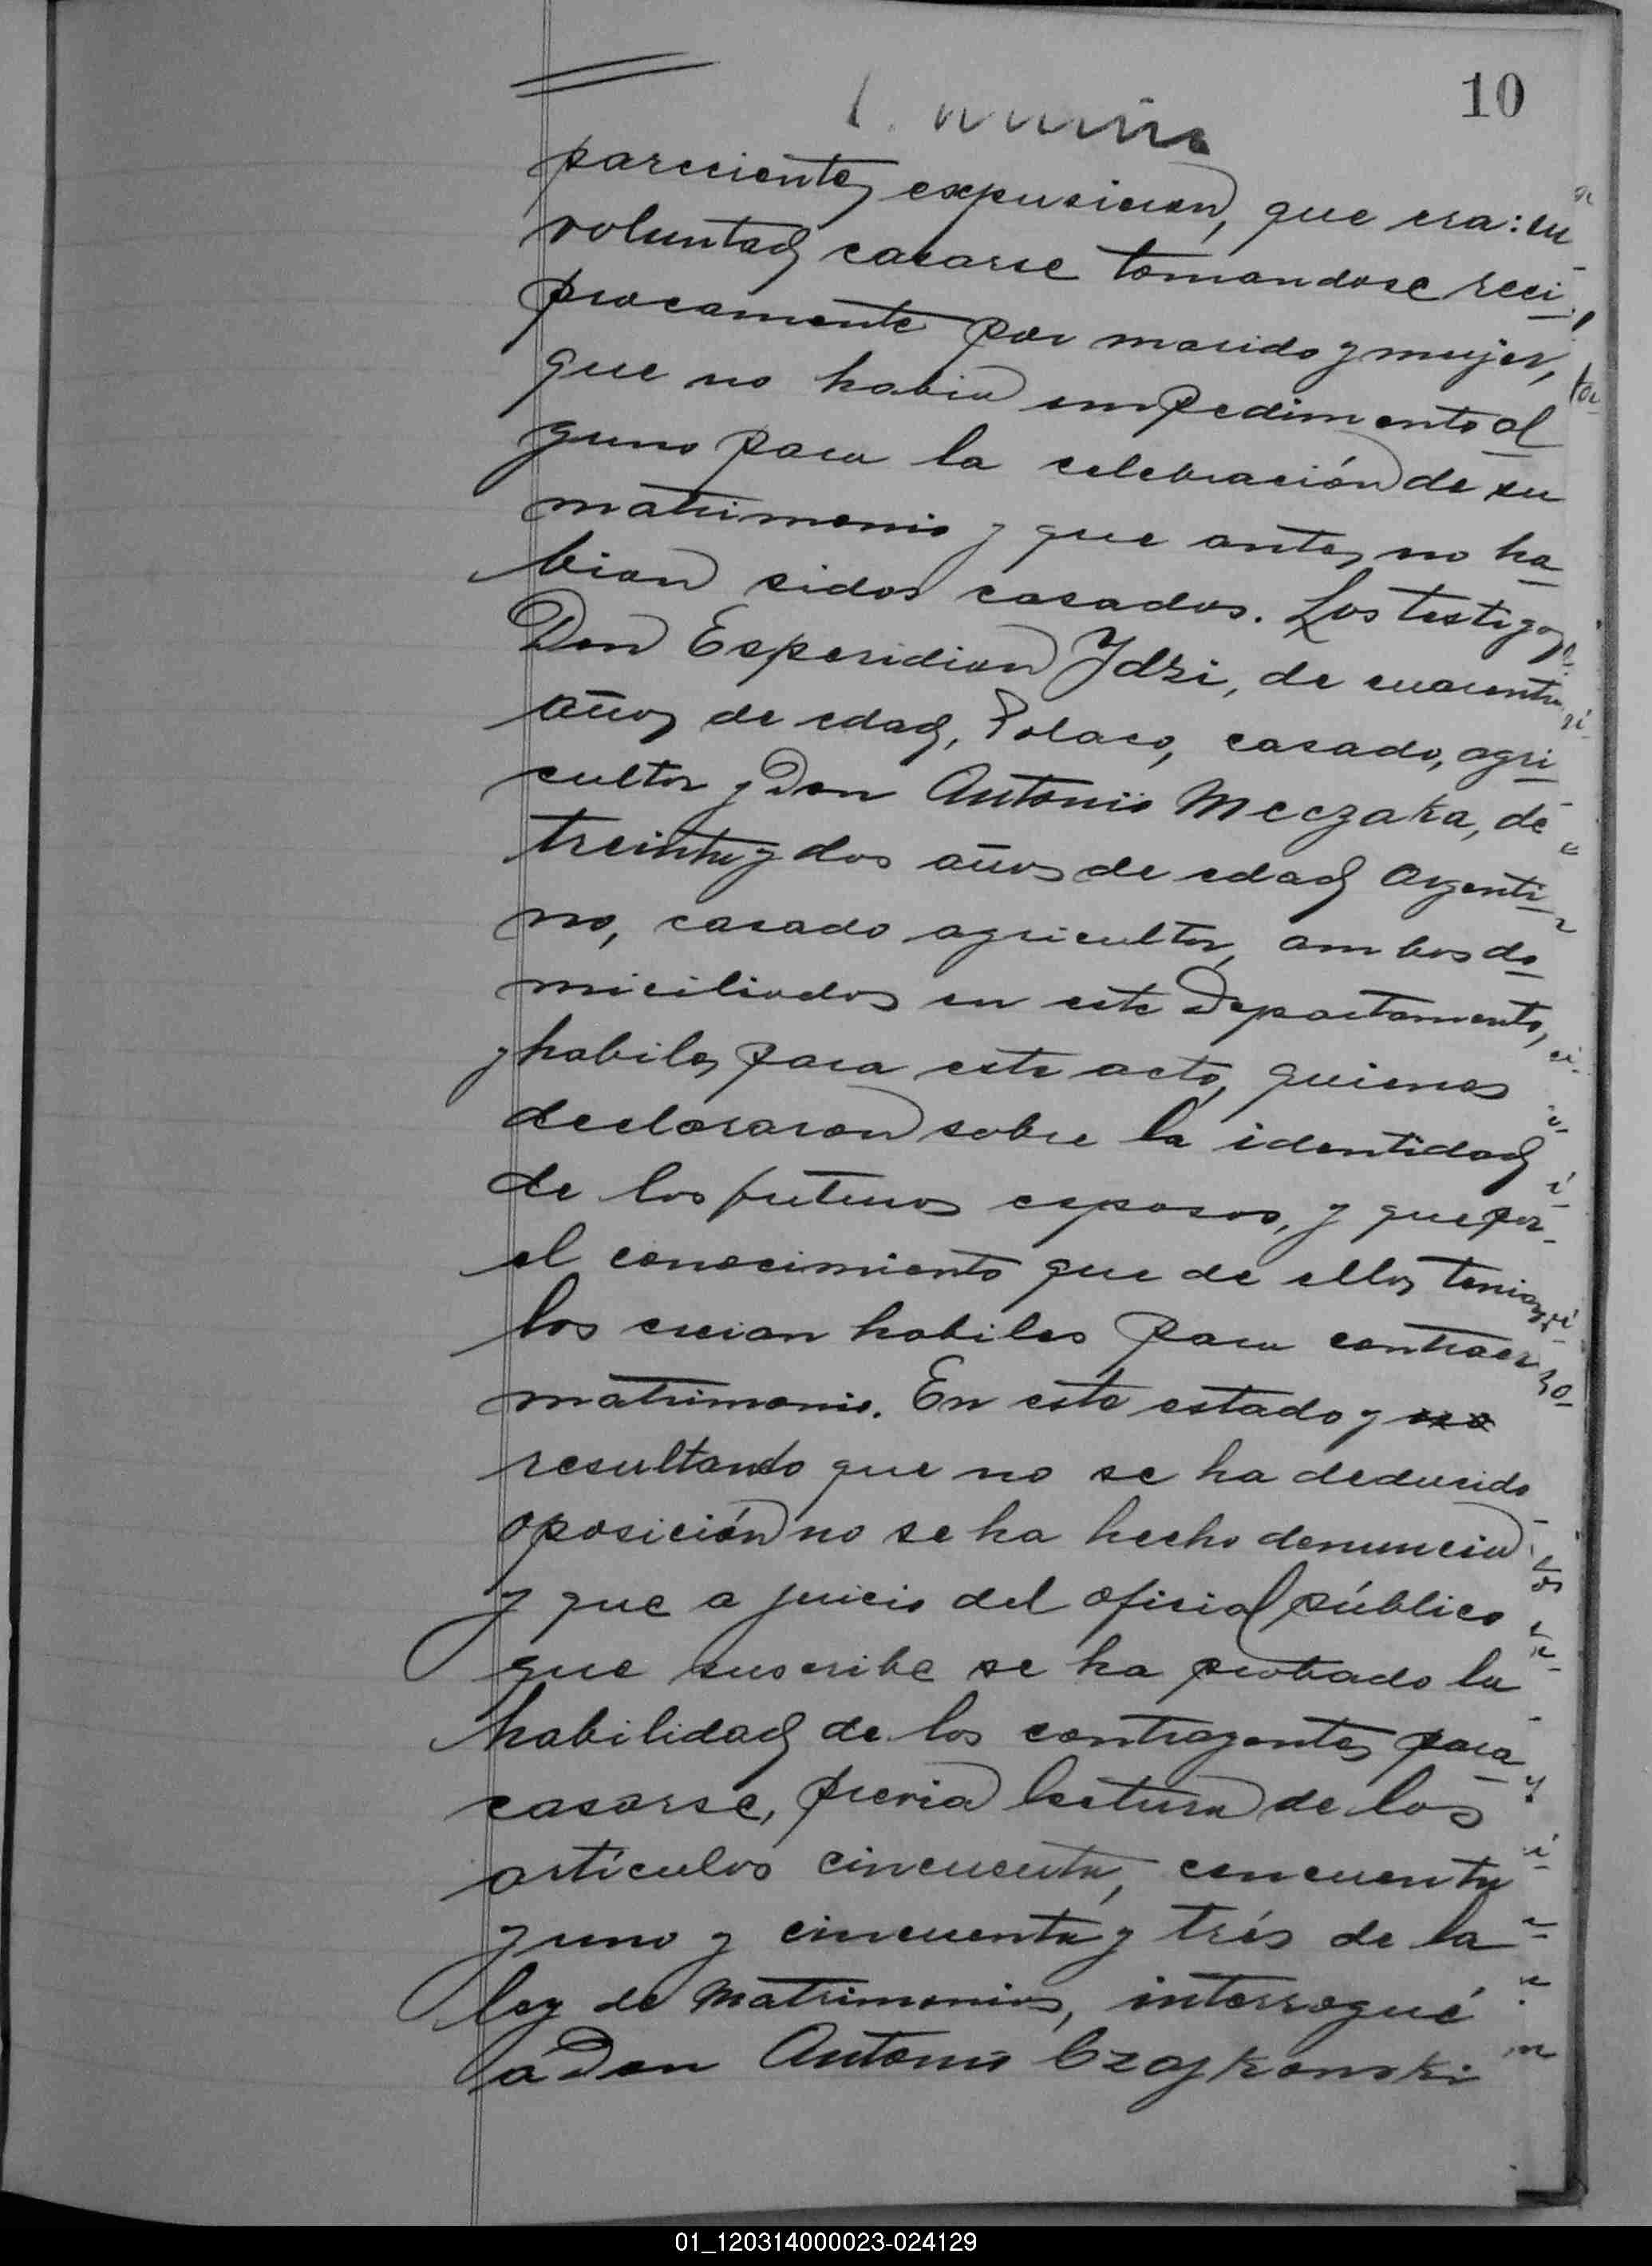 10
parecientes expusieron, que era: su
voluntad casarse tomandose reci
procamente por marido y mujer,
que no habia impedimento al
guno para la celebración de su
matrimonio y que antes no ha
bian sidos casados. Los testigos,
Don Esperidion Ydzi, de cuarenta
años de edad, Polaco, casado, agri
cultor y Don Antonio Meczaka, de
treinta y dos años de edad Argenti
no, casado agricultor, ambos do
miciliados en este Departamento,
y habiles para este acto, quienes
declararon sobre la identidad
de los futuros esposos, y que por
el conocimiento que de ellos tenian
los creian habiles para contraer
matrimonio. En este estado y no
resultando que no se ha deducido
oposición no se ha hecho denuncia
y que a juicio del oficial público
que suscribe se ha probado la
habilidad de los contragentes para
casarse, previa lectura de los
artículos cincuenta, cincuenta
y uno y cincuenta y trés de la
ley de Matrimonios, interrogué
á Don Antonio Czajkowski
01_120314000023-024129